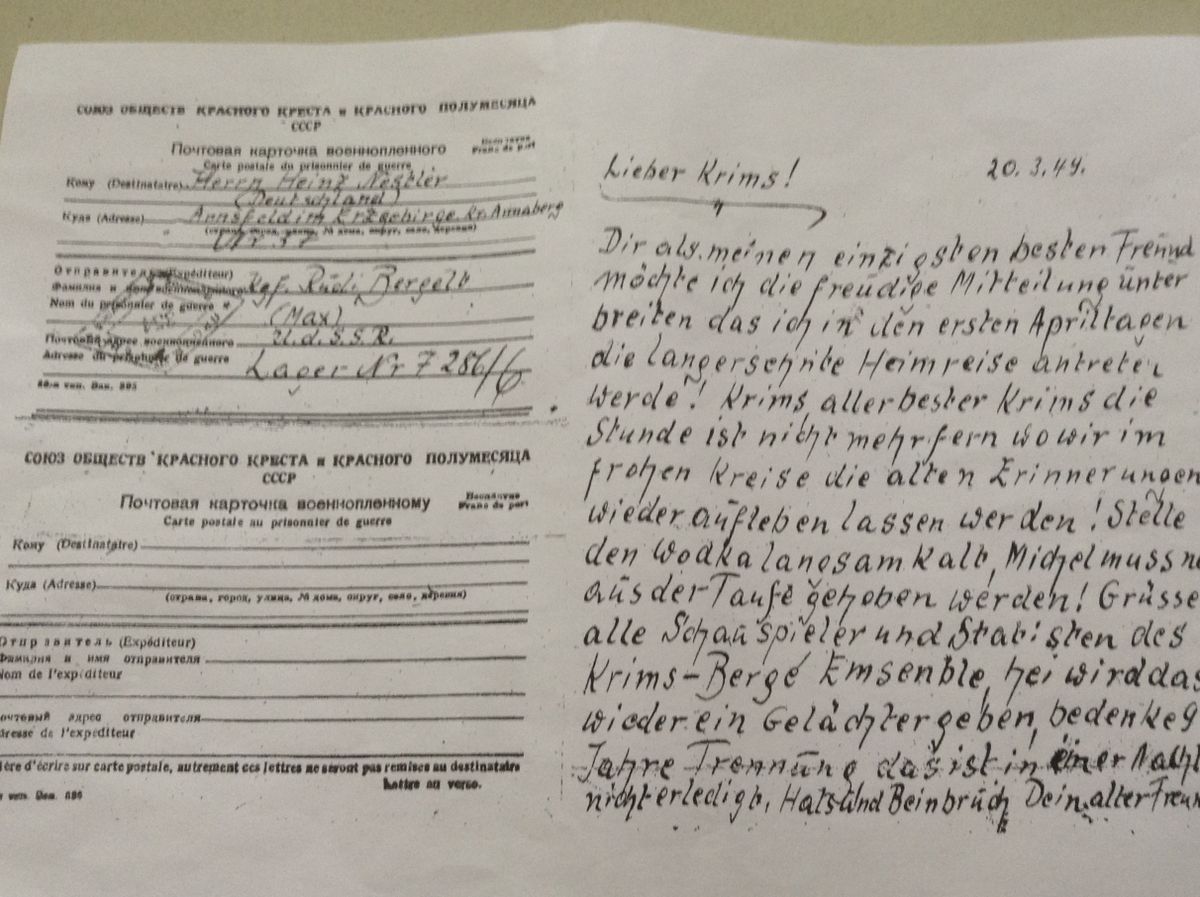 СОЮЗ ОБЩЕСТВ КРАСНОГО КРЕСТА и КРАСНОГО ПОЛУМЕСЯЦА
СССР
Почтовая карточка военнопленного
Бесплатно
Franc de port
Carte postale du prisonnier de guerre
Кому (Destinataire) Herrn Heinz Nestler
(Deutschland)
Куда (Adresse) Annsfeld im Erzgebirge Kr. Annaberg
(страна, город, улица, № дома, округ, село, деревня)
Nr. 57
Отправитель (Expéditeur)
Фамилия и имя военнопленного Kgf. Rudi Bergelt
Nom du prisonnier de guerre
(Max)
Почтовый адрес военнопленного U.d.S.S.R.
Adresse du prisonnier de guerre Lager Nr 7286/6
СОЮЗ ОБЩЕСТВ КРАСНОГО КРЕСТА и КРАСНОГО ПОЛУМЕСЯЦА
СССР
Почтовая карточка военнопленному
Бесплатно
Franc de port
Carte postale au prisonnier de guerre
Кому (Destinataire)
Куда (Adresse)
(страна, город, улица, № дома, округ, село, деревня)
Отправитель (Expéditeur)
Фамилия и имя отправителя
Nom de l'expéditeur
очтовый адрес отправителя
dresse de l'expéditeur
ière d'écrire sur carte postale, autrement ces lettres ne seront pas remises au destinataire
au verso.
Lieber Krims!
20.3.49.
Dir als meinen einzigsten besten Freund
möchte ich die freudige Mitteilung unter
breiten das ich in den ersten Apriltagen
die langersehnte Heimreise antreten
werde! Krims, allerbester Krims die
Stunde ist nicht mehr fern wo wir im
frohen Kreise die alten Erinnerungen
wieder aufleben lassen werden! Stelle
den Wodka langsam kalt, Michel muss
aus der Taufe gehoben werden! Grüsse
alle Schauspieler und Statisten des
Krims-Bergé Emsenble, hei wird das
wieder ein Gelächter geben, bedenke 9
Jahre Trennung das ist in einer Nacht
nicht erledigt, Hals und Beinbruch Dein alter